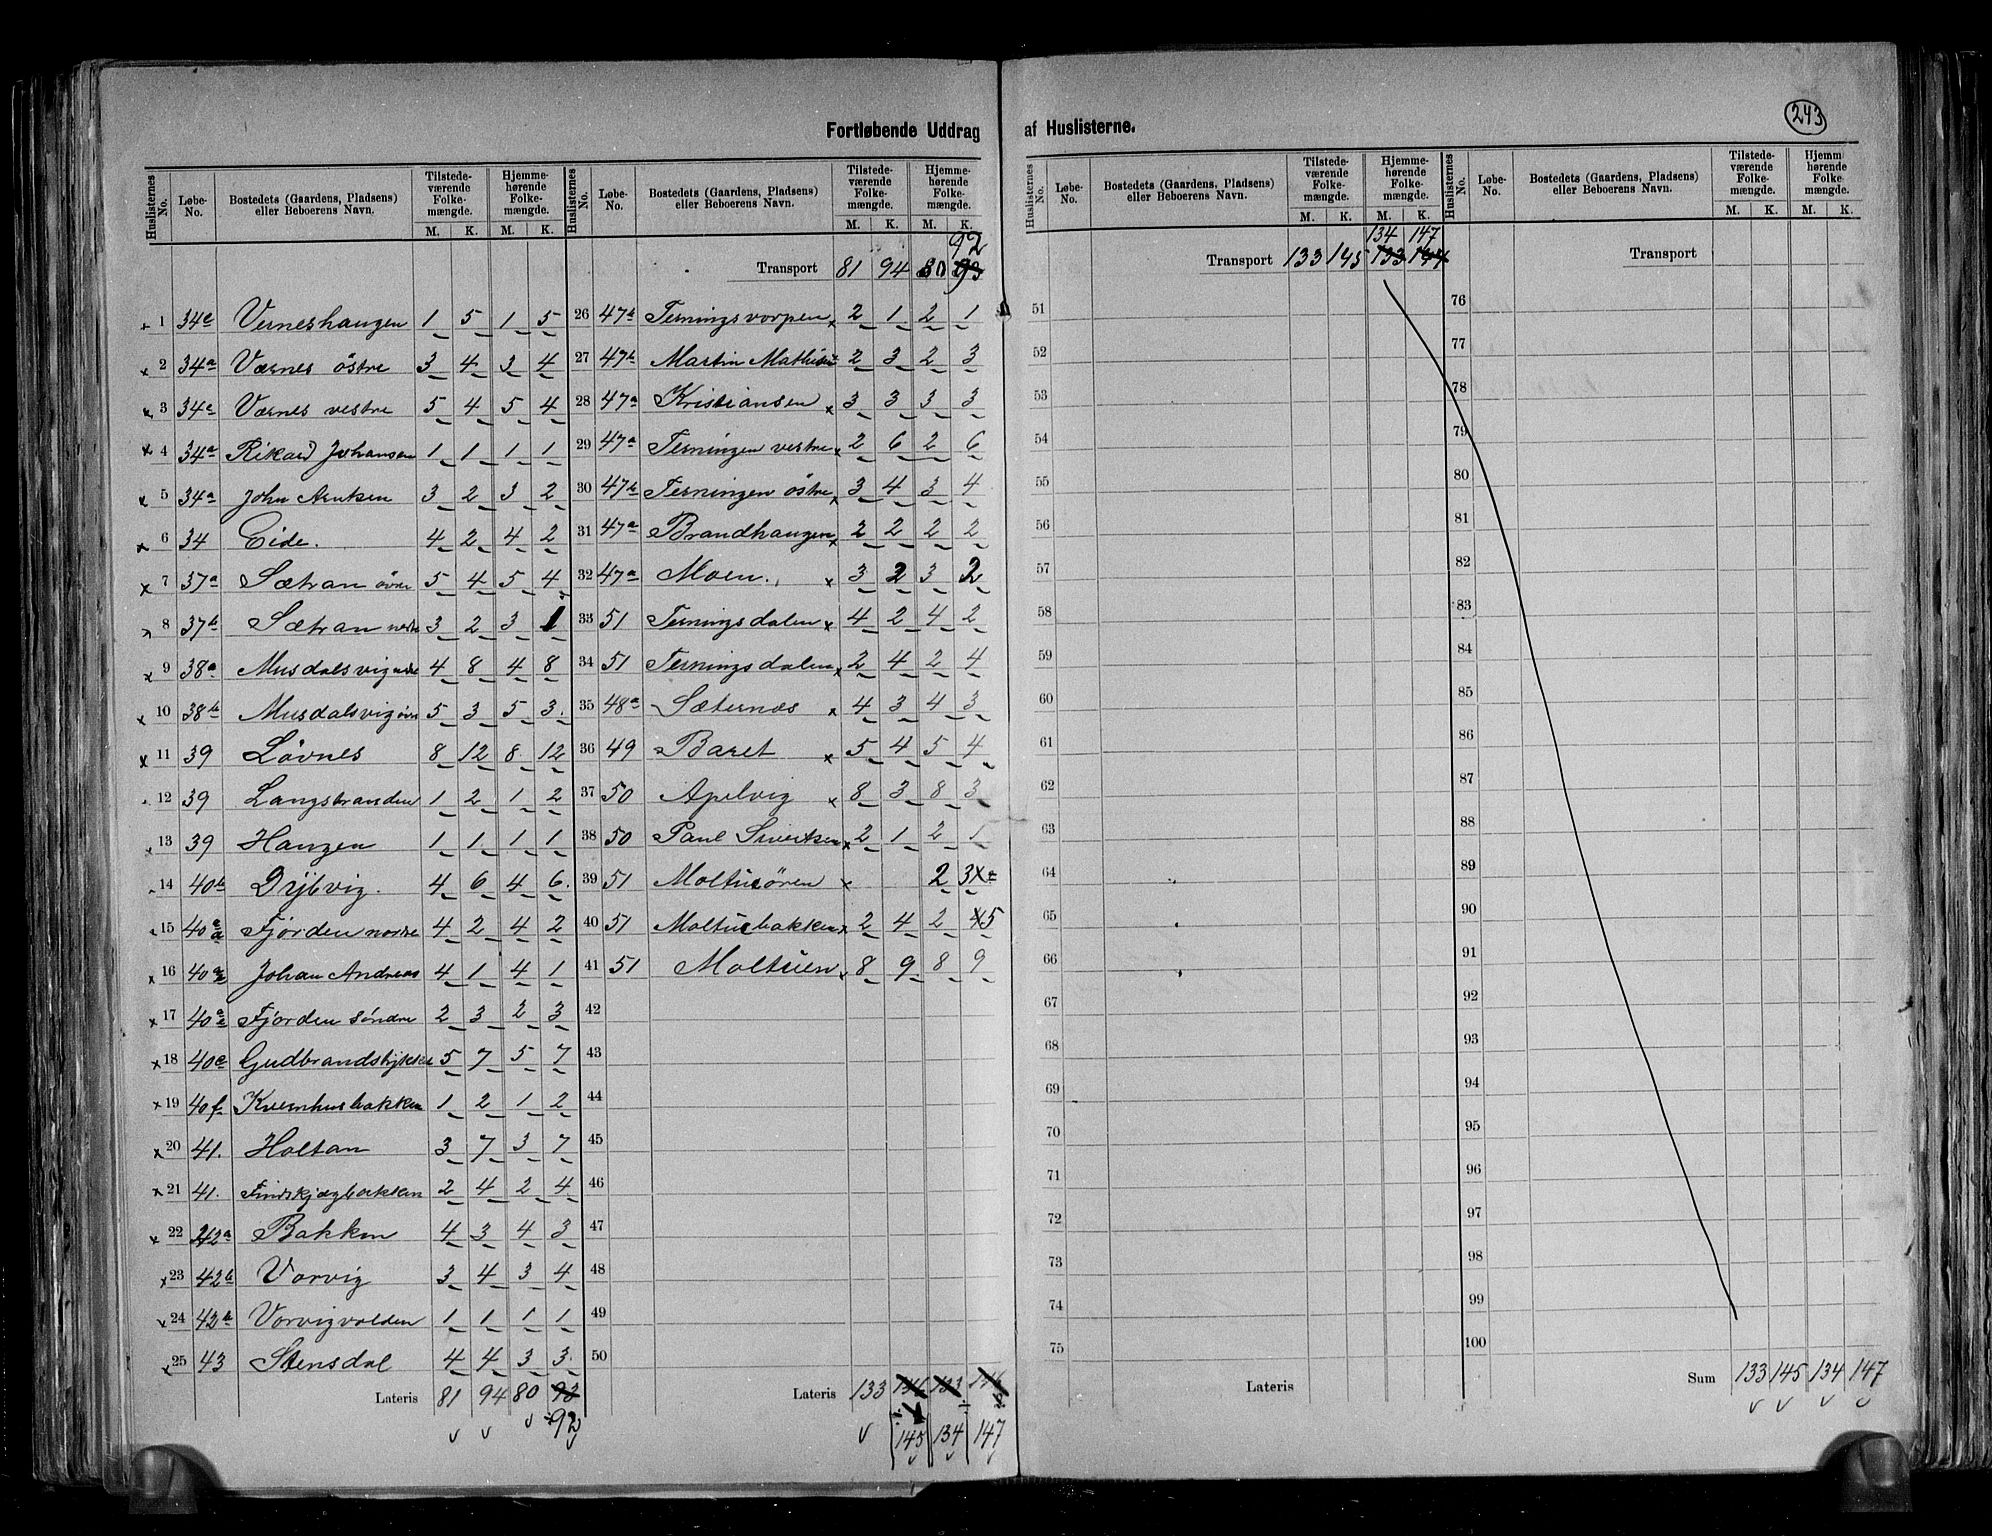 243
Fortløbende Uddrag af Huslisterne.
Huslisternes No. Løbe-No. Bostedets (Gaardens, Pladsens) eller Beboerens Navn. Tilstedeværende Folkemængde. M. K. Hjemmehørende Folkemængde. M. K.
1 34e Verneshaugen 1 5 1 5
2 34a Værnes östre 3 4 3 4
3 34c Værnes vestre 5 4 5 4
4 34a Rikard Johansen 1 1 1 1
5 34a John Arntsen 3 2 3 2
6 34 Eide. 4 2 4 2
7 37a Sætran övre 5 4 5 4
8 37b Sætran nedre 3 2 3 1
9 38a Musdalsvig nedre 4 8 4 8
10 38b Musdalsvig övre 5 3 5 3.
11 39 Lövnes 8 12 8 12
12 39 Langstranden 1 2 1 2
13 39 Haugen 1 1 1 1
14 40b Drybvig. 4 6 4 6.
15 40 Fjorden nordre 4 2 4 2
16 40 Johan Andreas 4 1 4 1
17 40 Fjorden söndre 2 3 2 3
18 40e Gudbrandstykke 5 7 5 7
19 40f Kvernhusbakken 1 2 1 2
20 41. Holtan 3 7 3 7
21 41. Finskjægbakken 2 4 2 4
22 42a Bakken 4 3 4 3
23 42b Vorvig 3 4 3 4
24 42b Vorvigvolden 1 1 1 1
25 43 Stensdal 4 4 3 3.
Lateris 81 94 80 93
92
Huslisternes No. Løbe-No. Bostedets (Gaardens, Pladsens) eller Beboerens Navn. Tilstedeværende Folkemængde. M. K. Hjemmehørende Folkemængde. M. K.
92
Transport 81 94 80 93
26 47b Terningsvorpen 2 1 2 1
27 47b Martin Mathisen 2 3 2 3
28 47a Kristiansen 3 3 3 3
29 47a Terningen vestre 2 6 2 6
30 47b Terningen östre 3 4 3 4
31 47a Brandhaugen 2 2 2 2
32 47a Moen. 3 2 3 2
33 51 Terningsdalen 4 2 4 2
34 51 Terningsdalen 2 4 2 4
35 48a Sæternes 4 3 4 3
36 49 Baret 5 4 5 4
37 50 Apelvig 8 3 8 3
38 50 Paul Sivertsen 2 1 2 1
39 51 Moltusören 2 3
40 51 Moltubakken 2 4 2 5
41 51 Moltuen 8 9 8 9
42
43
44
45
46
47
48
49
50
Lateris 133 146 133 146
145 134 147
Huslisternes No. Løbe-No. Bostedets (Gaardens, Pladsens) eller Beboerens Navn. Tilstedeværende Folkemængde. M. K. Hjemmehørende Folkemængde. M. K.
134 147
Transport 133 145 133 144
51
52
53
54
55
56
57
58
59
60
61
62
63
64
65
66
67
68
69
70
71
72
73
74
75
Lateris
Huslisternes No. Løbe-No. Bostedets (Gaardens, Pladsens) eller Beboerens Navn. Tilstedeværende Folkemængde. M. K. Hjemmehørende Folkemængde. M. K.
Transport
76
77
78
79
80
81
82
83
84
85
86
87
88
89
90
91
92
93
94
95
96
97
98
99
100
Sum 133 145 134 147